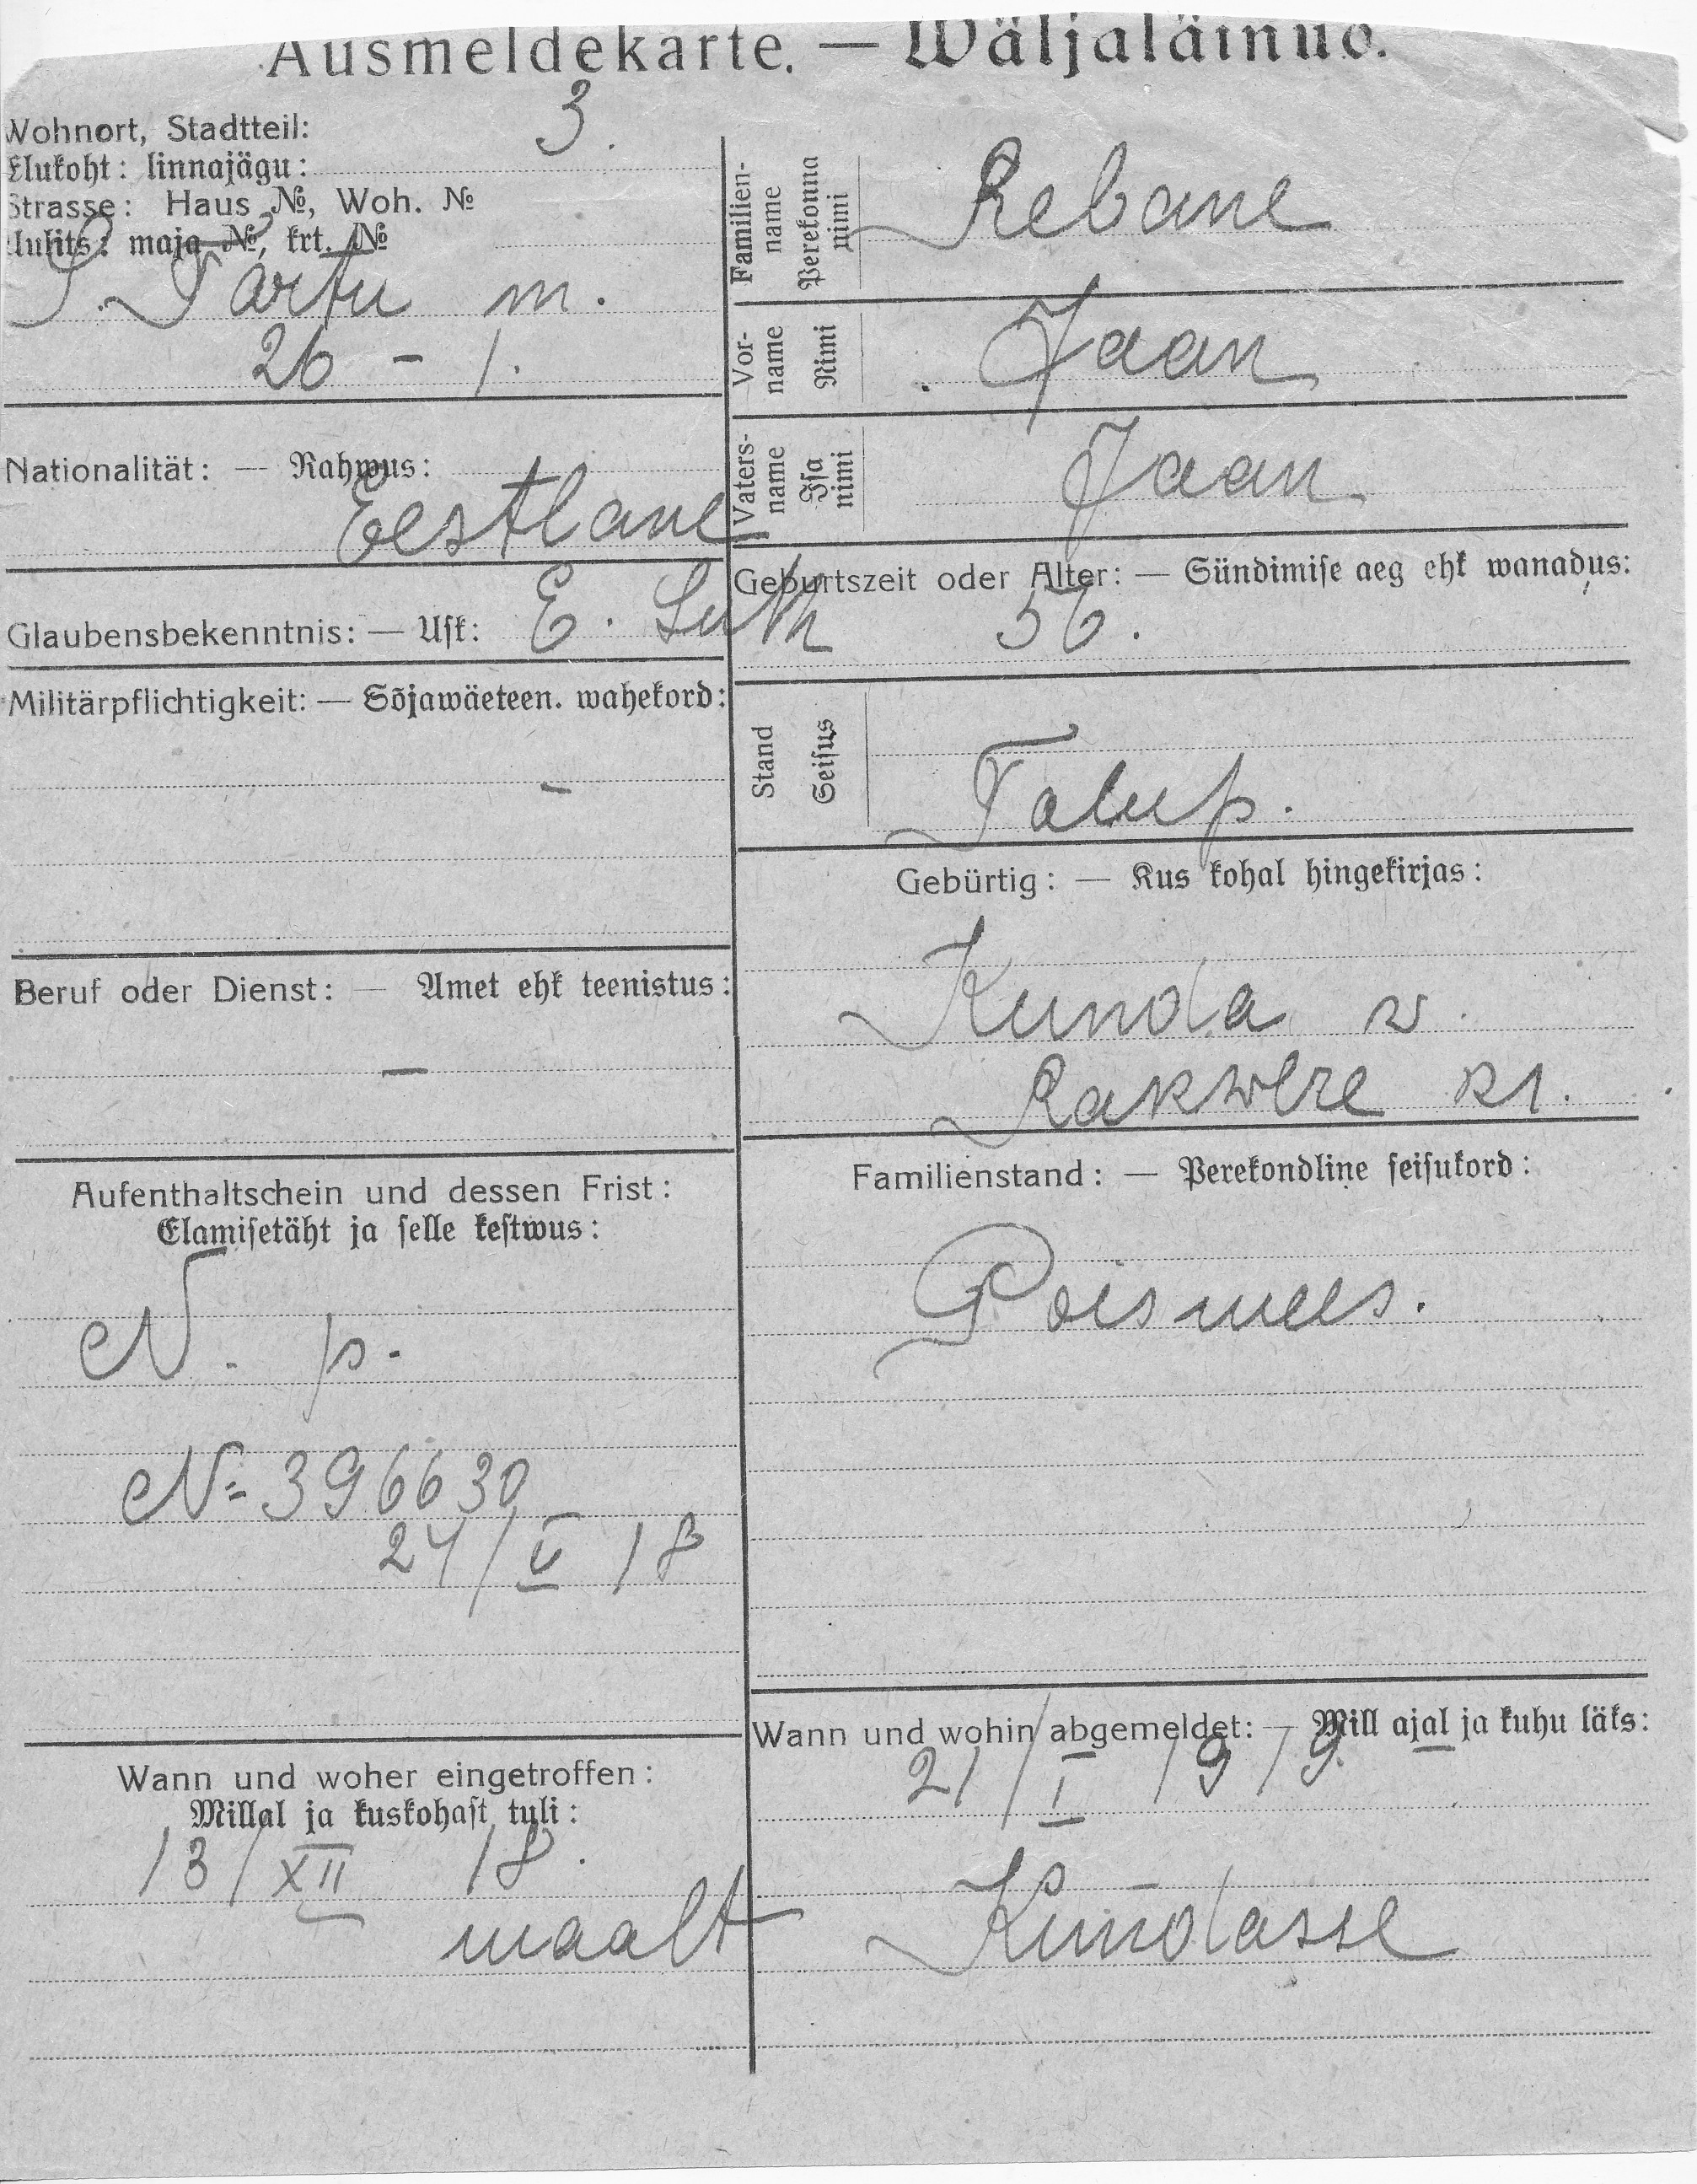 Ausmeldekarte. — Wäljaläinud.
Wohnort, Stadtteil: 3.
Elukoht: linnajägu:
Strasse: Haus №, Woh. №
Uulits: maja №, krt. №
S. Tartu m.
26 – 1.
Nationalität: — Rahwus:
Eestlane
Glaubensbekenntnis: — Usk: E. Luth
Militärpflichtigkeit: — Sõjawäeteen. wahekord:
–
Beruf oder Dienst: — Amet ehk teenistus:
—
Aufenthaltschein und dessen Frist:
Elamisetäht ja selle kestwus:
N. p.
№ 396630
24/V 18
Wann und woher eingetroffen:
Millal ja kuskohast tuli:
13/XII 18.
maalt
Familien-
name
Perekonna
nimi
Rebane
Vor-
name
Nimi
Jaan
Vaters-
name
Isa
nimi
Jaan
Geburtszeit oder Alter: — Sündimise aeg ehk wanadus:
56.
Stand
Seisus
Talup.
Gebürtig: — Kus kohal hingekirjas:
Kunda w.
Rakwere kr.
Familienstand: — Perekondline seisukord:
Poismees.
Wann und wohin abgemeldet: — Mill ajal ja kuhu läks:
21/I 1919.
Kundasse